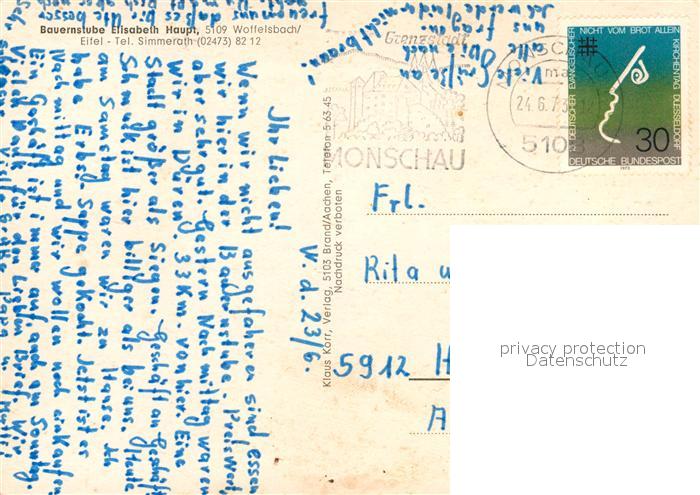 Bauernstube Elisabeth Haupt, 5109 Woffelsbach/
Eifel - Tel. Simmerath (02473) 82 12
Klaus Korr, Verlag, 5103 Brand/Aachen, Telefon 5 63 45
Nachdruck verboten
W. d. 23/6.
Ihr Lieben!
Wenn wir nicht ausgefahren sind essen
wir hier in der Bauernstube. Preiswert,
aber sehr gut. Gestern Nachmittag waren
wir in Düren. 33 Km. von hier. Eine
Stadt größer als Siegen. Geschäft an Geschäft
alles billiger als bei uns. Heute
am Samstag. waren wir zu Hause. Ich
habe Erbs. Suppe gekocht. Jetzt ist er
Nachmittag und wir wollen noch einkaufen.
Ein Geschäft ist immer auf. auch am Sonntag.
Vielen Dank für den lieben Brief
Viele Grüße an
alle
Grenzstadt
MONSCHAU
24.6.73
5108
DEUTSCHER EVANGELISCHER KIRCHENTAG DUESSELDORF
NICHT VOM BROT ALLEIN
30
DEUTSCHE BUNDESPOST
1973
Frl.
Rita u
5912 H
A
privacy protection
Datenschutz